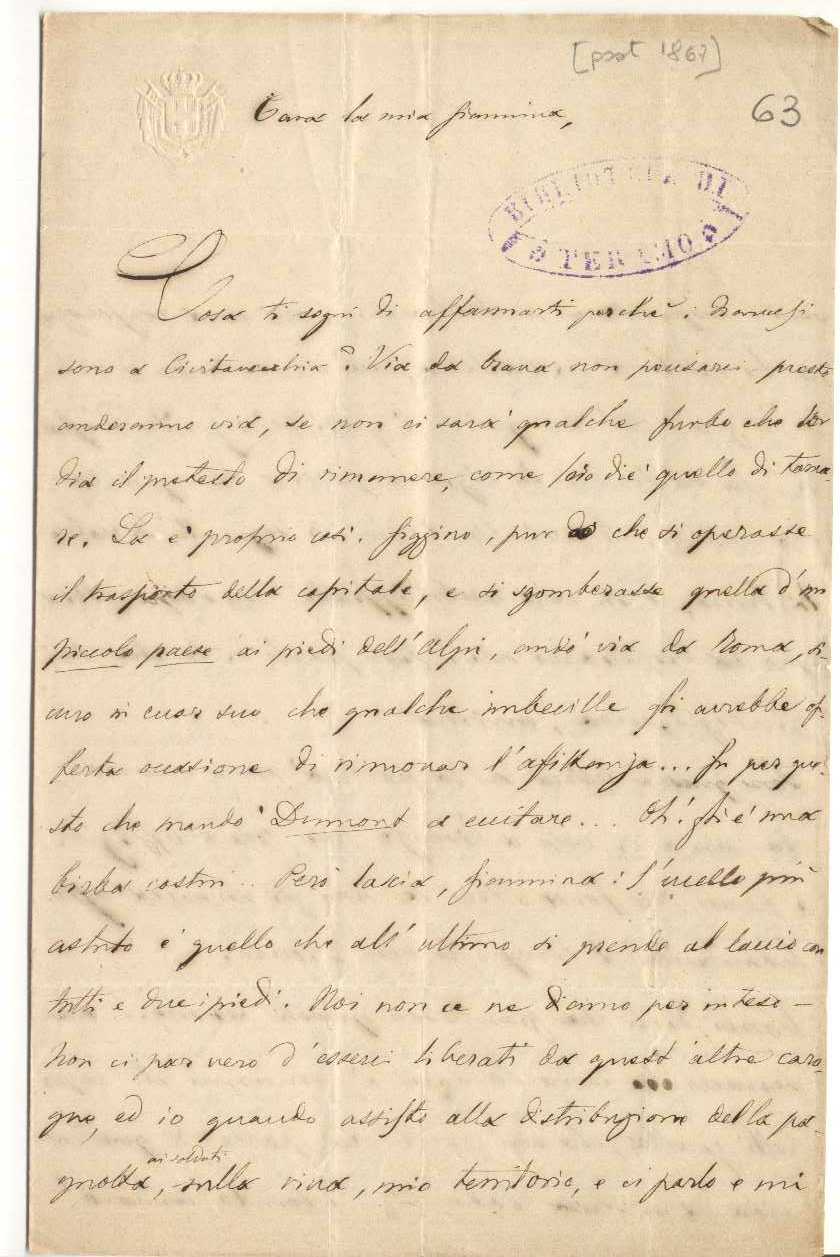 [post 1867]
63
Cara la mia Giannina,
BIBLIOTECA DI
TERAMO
Cosa ti sogni di affannarti perchè i Francesi
sono a Civitavecchia? Via da brava non pensarci presto
anderanno via, se non ci sarà qualche furbo che
dia il pretesto di rimanere, come già diè quello di torna-
re. La è proprio così. Giggino, pur che si operasse
il trasporto della capitale, e si sgomberasse quella d'un
piccolo paese ai piedi dell'Alpi, andò via da Roma, si-
curo in cuor suo che qualche imbecille gli avrebbe of-
ferta occasione di rinnovar l'affittanza... Fu per que-
sto che mandò Dumont a eccitare... Oh! gli è una
birba costui.. Però lascia, Giannina: l'uccello più
astuto è quello che all'ultimo si prende al laccio con
tutti e due i piedi. Noi non ce ne diamo per inteso —
Non ci par vero d'esserci liberati da quest'altre caro-
gne, ed io quando assisto alla distribuzione della pa-
gnotta, ai soldati sulla riva, mio territorio, e ci parlo e mi